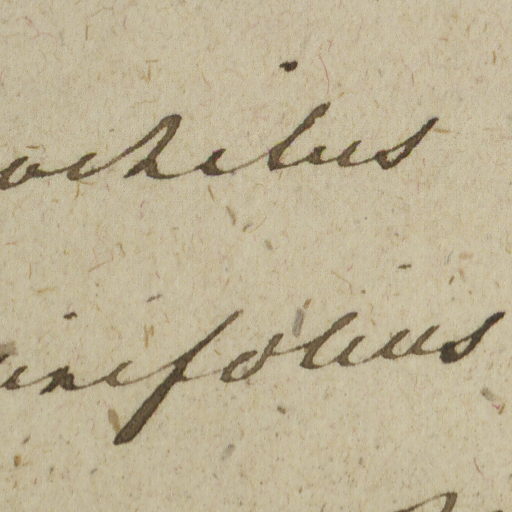 ochilus
inifolius